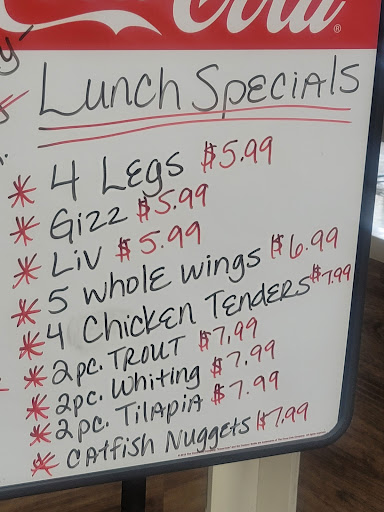 Coca-Cola®
Lunch Specials
* 4 Legs $5.99
* Gizz $5.99
* Liv $5.99
* 5 whole wings $6.99
* 4 Chicken Tenders $7.99
* 2pc. Trout $7.99
* 2pc. Whiting $7.99
* 2pc. Tilapia $7.99
* Catfish Nuggets $7.99